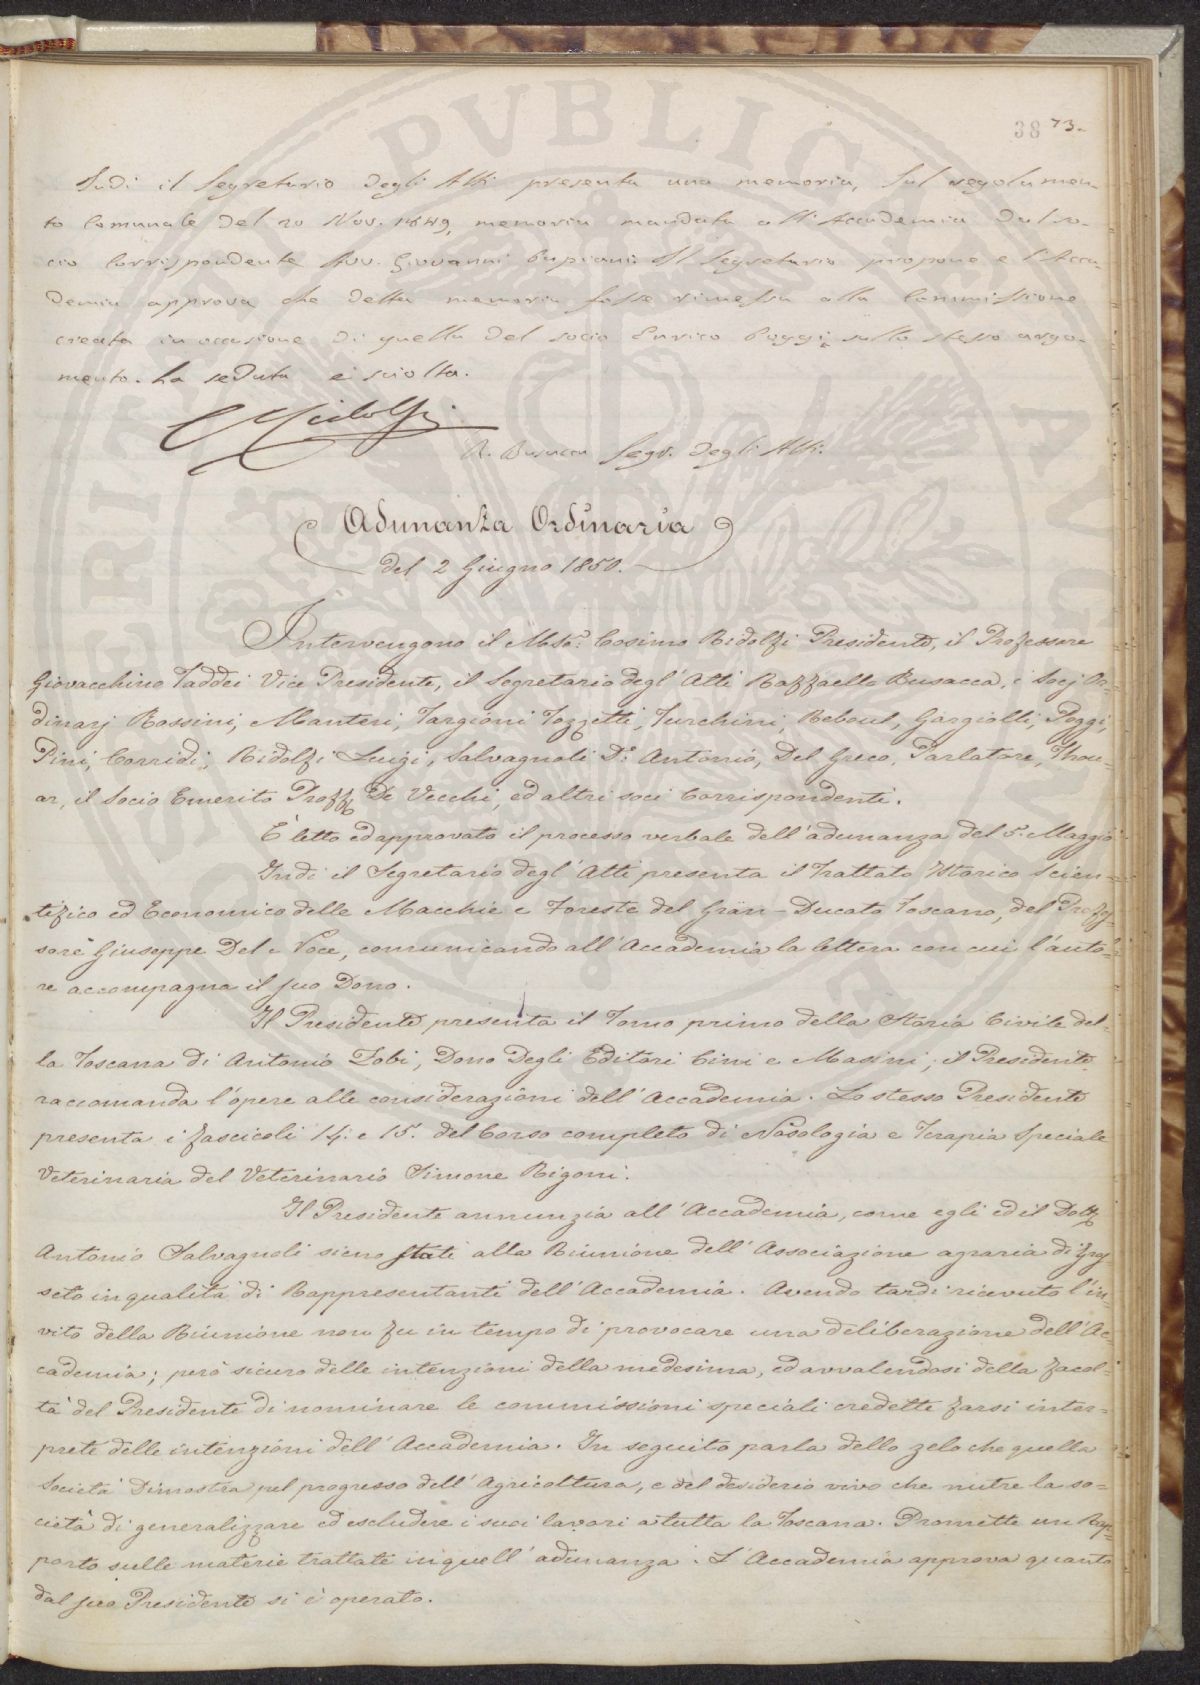 38 73.
Indi il Segretario degli Atti presenta una memoria, sul regolamen-
to Comunale del 20 Nov. 1849, memoria mandata all'Accademia dal so-
cio Corrispondente Avv. Giovanni Cupiani. Il Segretario propone e l'Acca-
demia approva che detta memoria fosse rimessa alla Commissione
creata in occasione di quella del socio Enrico Poggi sullo stesso argo-
mento. La seduta è sciolta.
C Ridolfi
R. Busacca Segr. degli Atti.
Adunanza Ordinaria
del 2 Giugno 1850.
Intervengono il Msē. Cosimo Ridolfi Presidente, il Professore
Giovacchino Taddei Vice Presidente, il Segretario degl'Atti Raffaello Busacca, i Socj Or-
dinarj Rossini, Manteri, Targioni Tozzetti, Turchini, Reboul, Gargiolli, Poggi,
Pini, Corridi, Ridolfi Luigi, Salvagnoli Dr. Antonio, Del Greco, Parlatore, Thou-
ar, il Socio Emerito Proff De Vecchi, ed altri soci Corrispondenti.
È letto ed approvato il processo verbale dell'adunanza del 5. Maggio
Indi il Segretario degl'Atti presenta il Trattato Istorico Scien=
tifico ed Economico delle Macchie e Foreste del Gran-Ducato Toscano, del Profes-
sore Giuseppe Del Noce, comunicando all'Accademia la lettera con cui l'auto-
re accompagna il suo Dono.
Il Presidente presenta il Tomo primo della Storia Civile del-
la Toscana di Antonio Zobi, Dono degli Editori Cini e Masini, il Presidente
raccomanda l'opere alle considerazioni dell'Accademia. Lo stesso Presidente
presenta i fascicoli 14. e 15. del Corso completo di Nosologia e Terapia Speciale
Veterinaria del Veterinario Simone Rigoni.
Il Presidente annunzia all'Accademia, come egli ed il Dott
Antonio Salvagnoli sieno stati alla Riunione dell'Associazione agraria di Gros-
seto in qualità di Rappresentanti dell'Accademia. Avendo tardi ricevuto l'in-
vito della Riunione non fu in tempo di provocare una deliberazione dell'Ac-
cademia; però sicuro delle intenzioni della medesima, ed avvalendosi della facol-
tà del Presidente di nominare le commissioni speciali credette farsi inter=
prete delle intenzioni dell'Accademia. In seguito parla dello zelo che quella
Società Dimostra pel progresso dell'Agricoltura, e del desiderio vivo che nutre la so=
cietà di generalizzare ed escludere i suoi lavori a tutta la Toscana. Promette un Rap-
porto sulle materie trattate in quell'adunanza. L'Accademia approva quanto
dal suo Presidente si è operato.